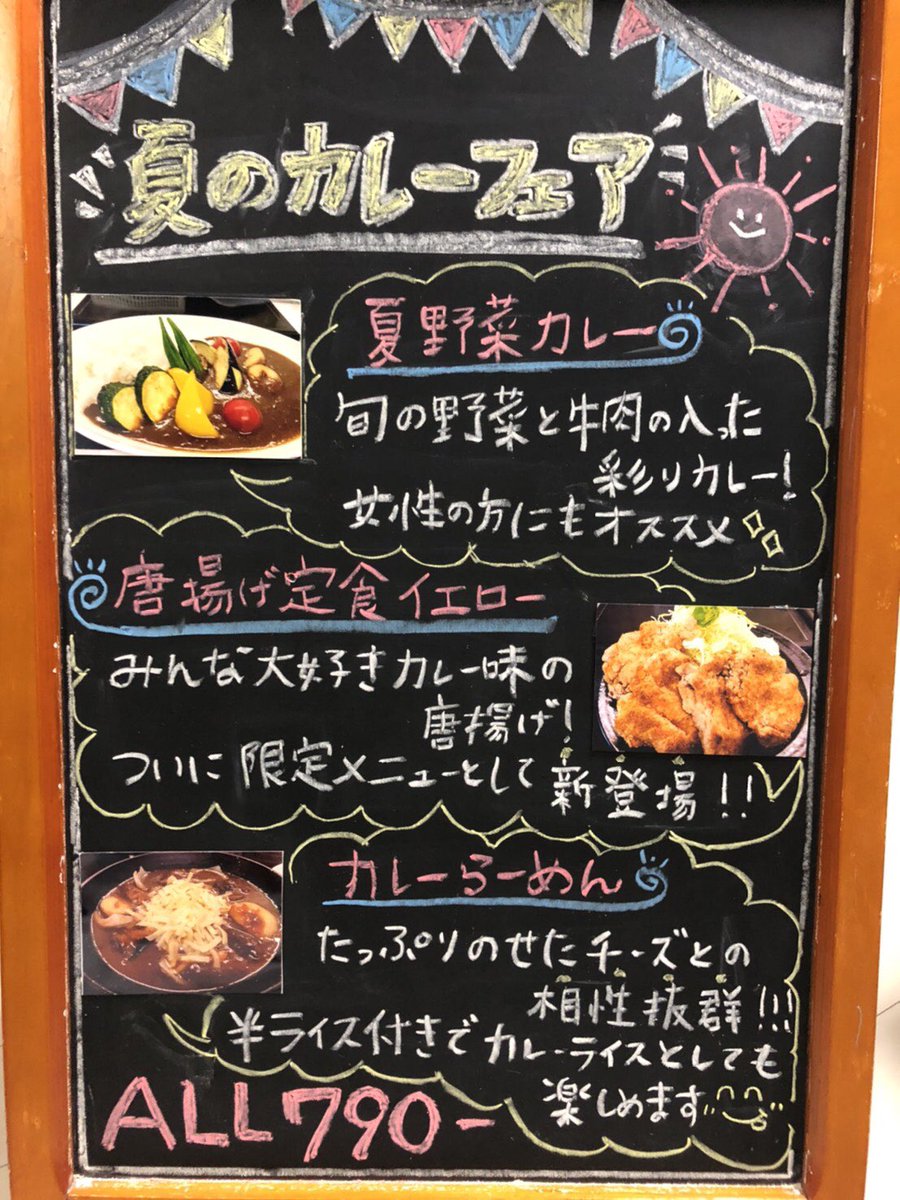 夏のカレーフェア
夏野菜カレー
旬の野菜と牛肉の入った
彩りカレー!
女性の方にもオススメ
唐揚げ定食イエロー
みんな大好きカレー味の
唐揚げ!
ついに限定メニューとして新登場!!
カレーらーめん
たっぷりのせたチーズとの
相性抜群!!!
半ライス付きでカレーライスとしても
楽しめます
ALL790-